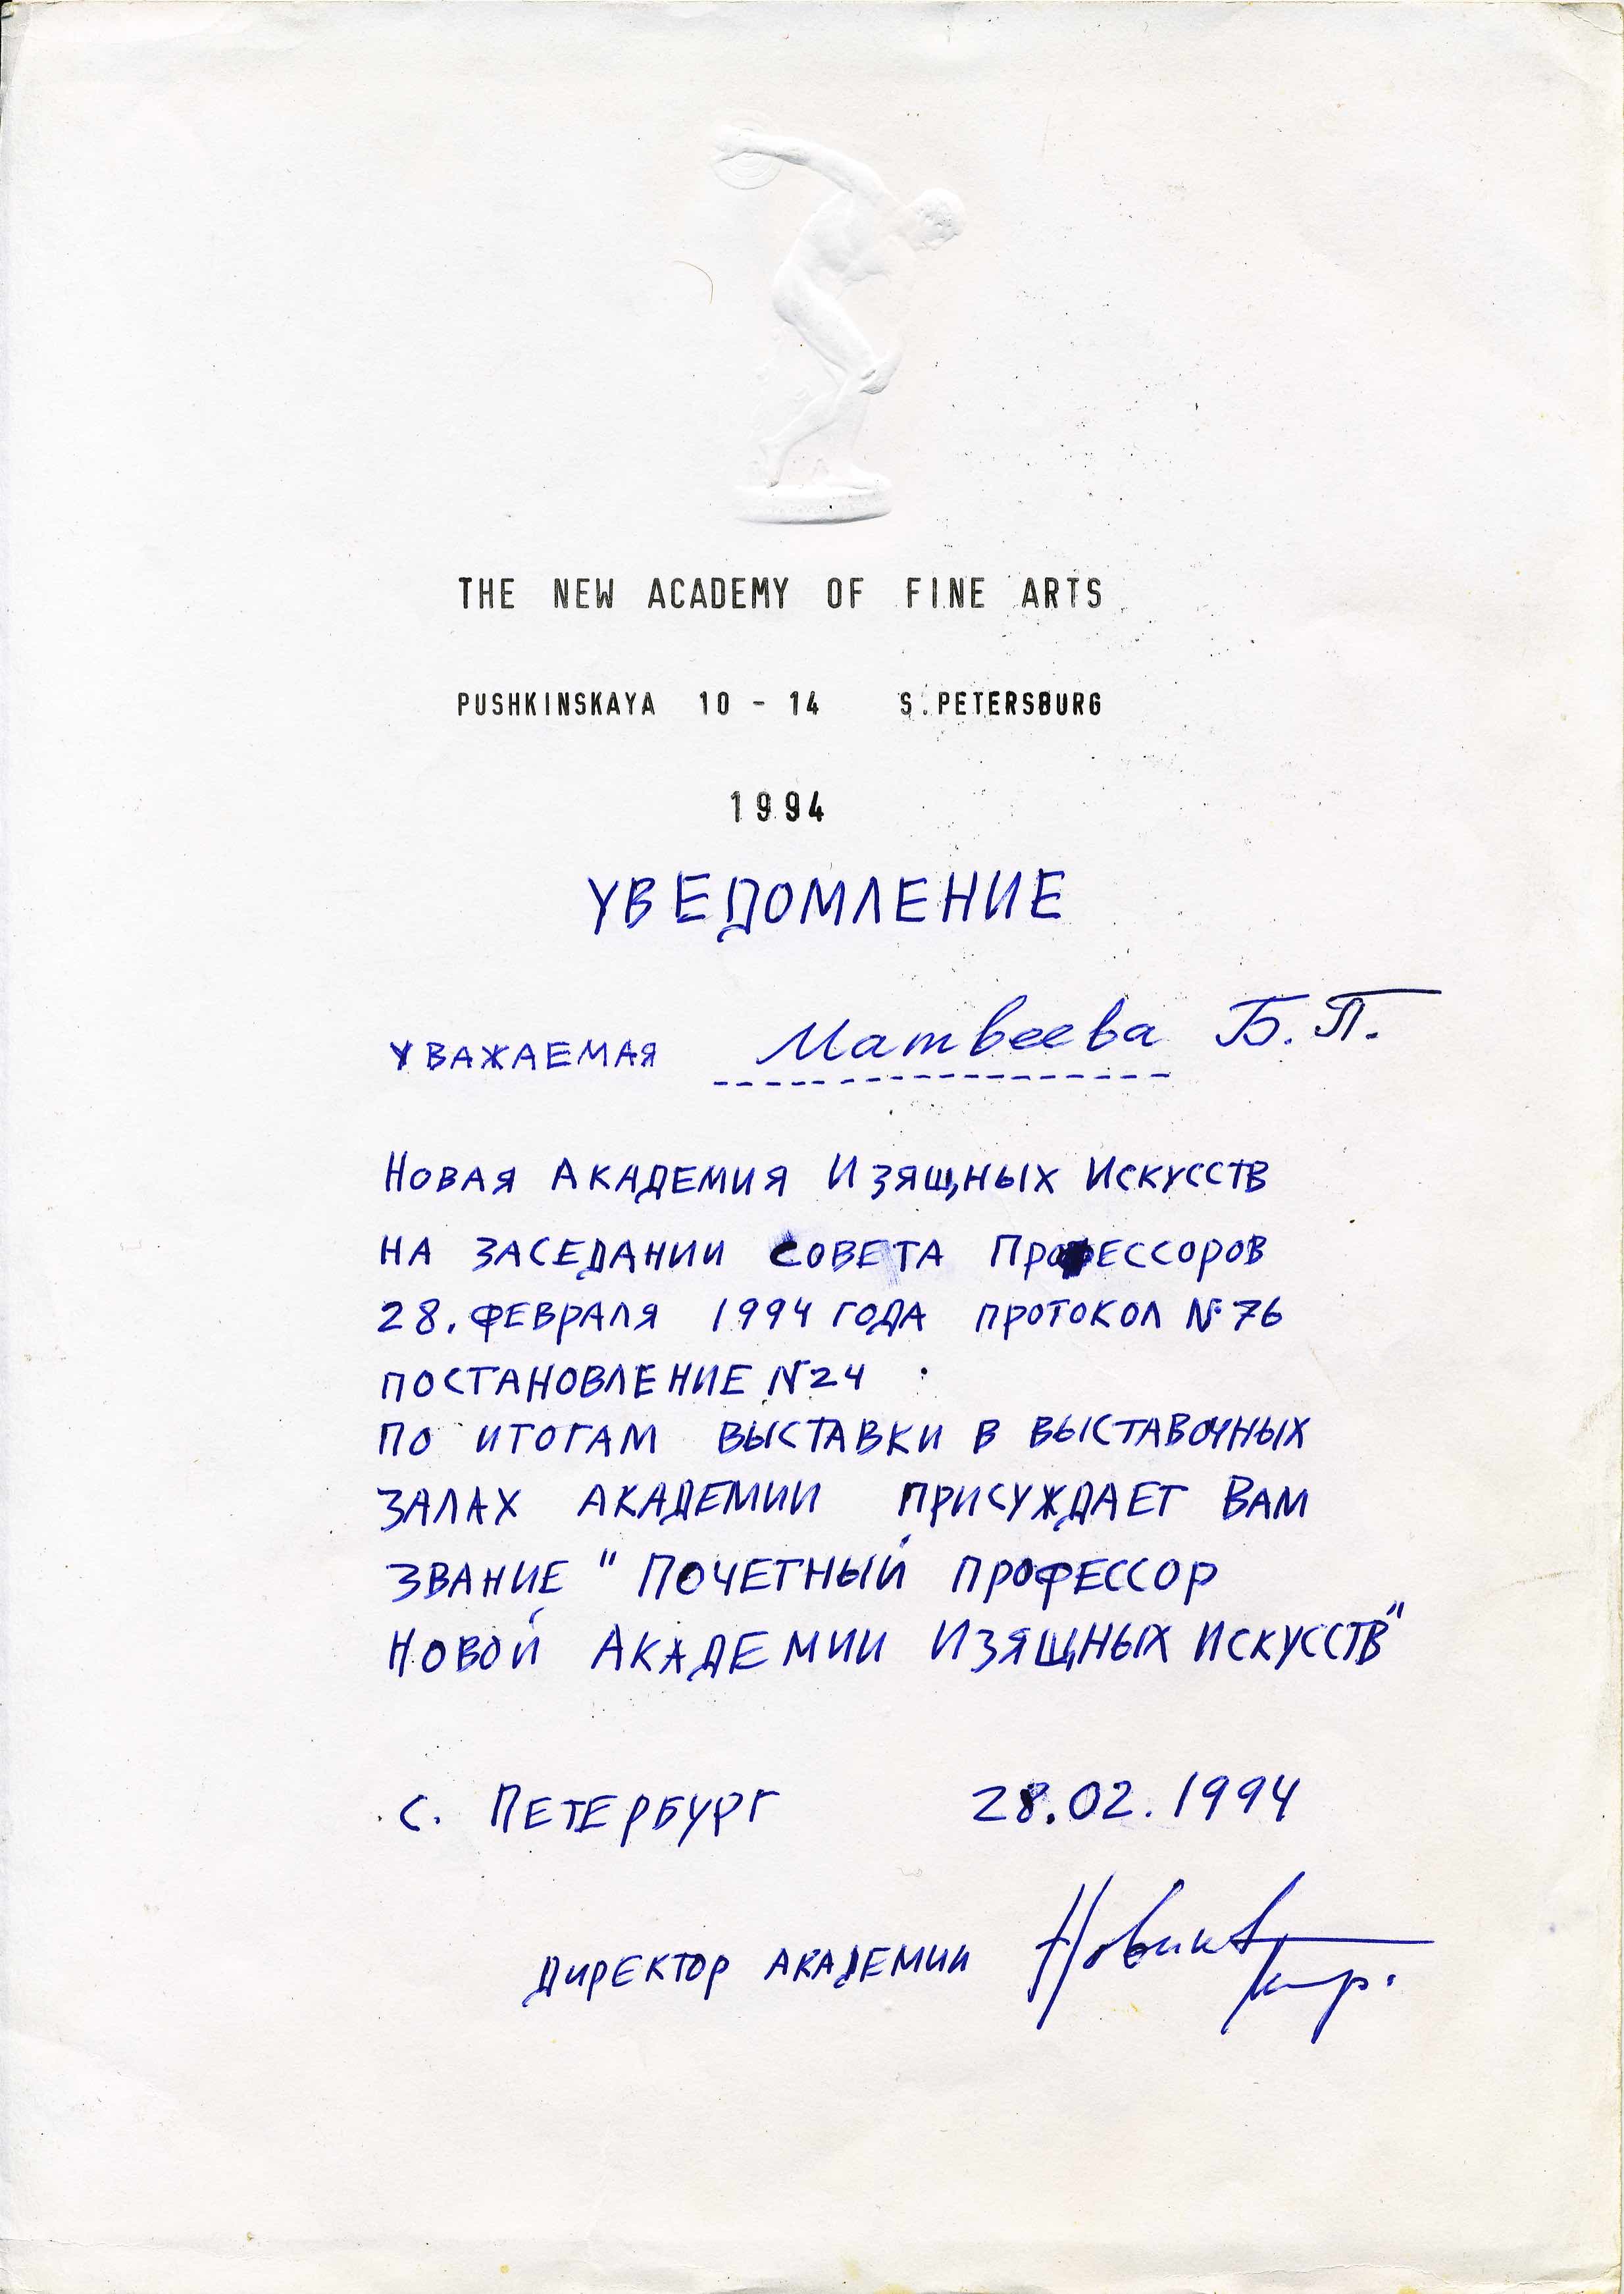 THE NEW ACADEMY OF FINE ARTS
PUSHKINSKAYA 10 - 14 S.PETERSBURG
1994
УВЕДОМЛЕНИЕ
УВАЖАЕМАЯ Матвеева Б.П.
НОВАЯ АКАДЕМИЯ ИЗЯЩНЫХ ИСКУССТВ
НА ЗАСЕДАНИИ СОВЕТА ПРОФЕССОРОВ
28. ФЕВРАЛЯ 1994 ГОДА ПРОТОКОЛ №76
ПОСТАНОВЛЕНИЕ N24 :
ПО ИТОГАМ ВЫСТАВКИ В ВЫСТАВОЧНЫХ
ЗАЛАХ АКАДЕМИИ ПРИСУЖДАЕТ ВАМ
ЗВАНИЕ "ПОЧЕТНЫЙ ПРОФЕССОР
НОВОЙ АКАДЕМИИ ИЗЯЩНЫХ ИСКУССТВ"
С. ПЕТЕРБУРГ 28.02.1994
ДИРЕКТОР АКАДЕМИИ Новиков